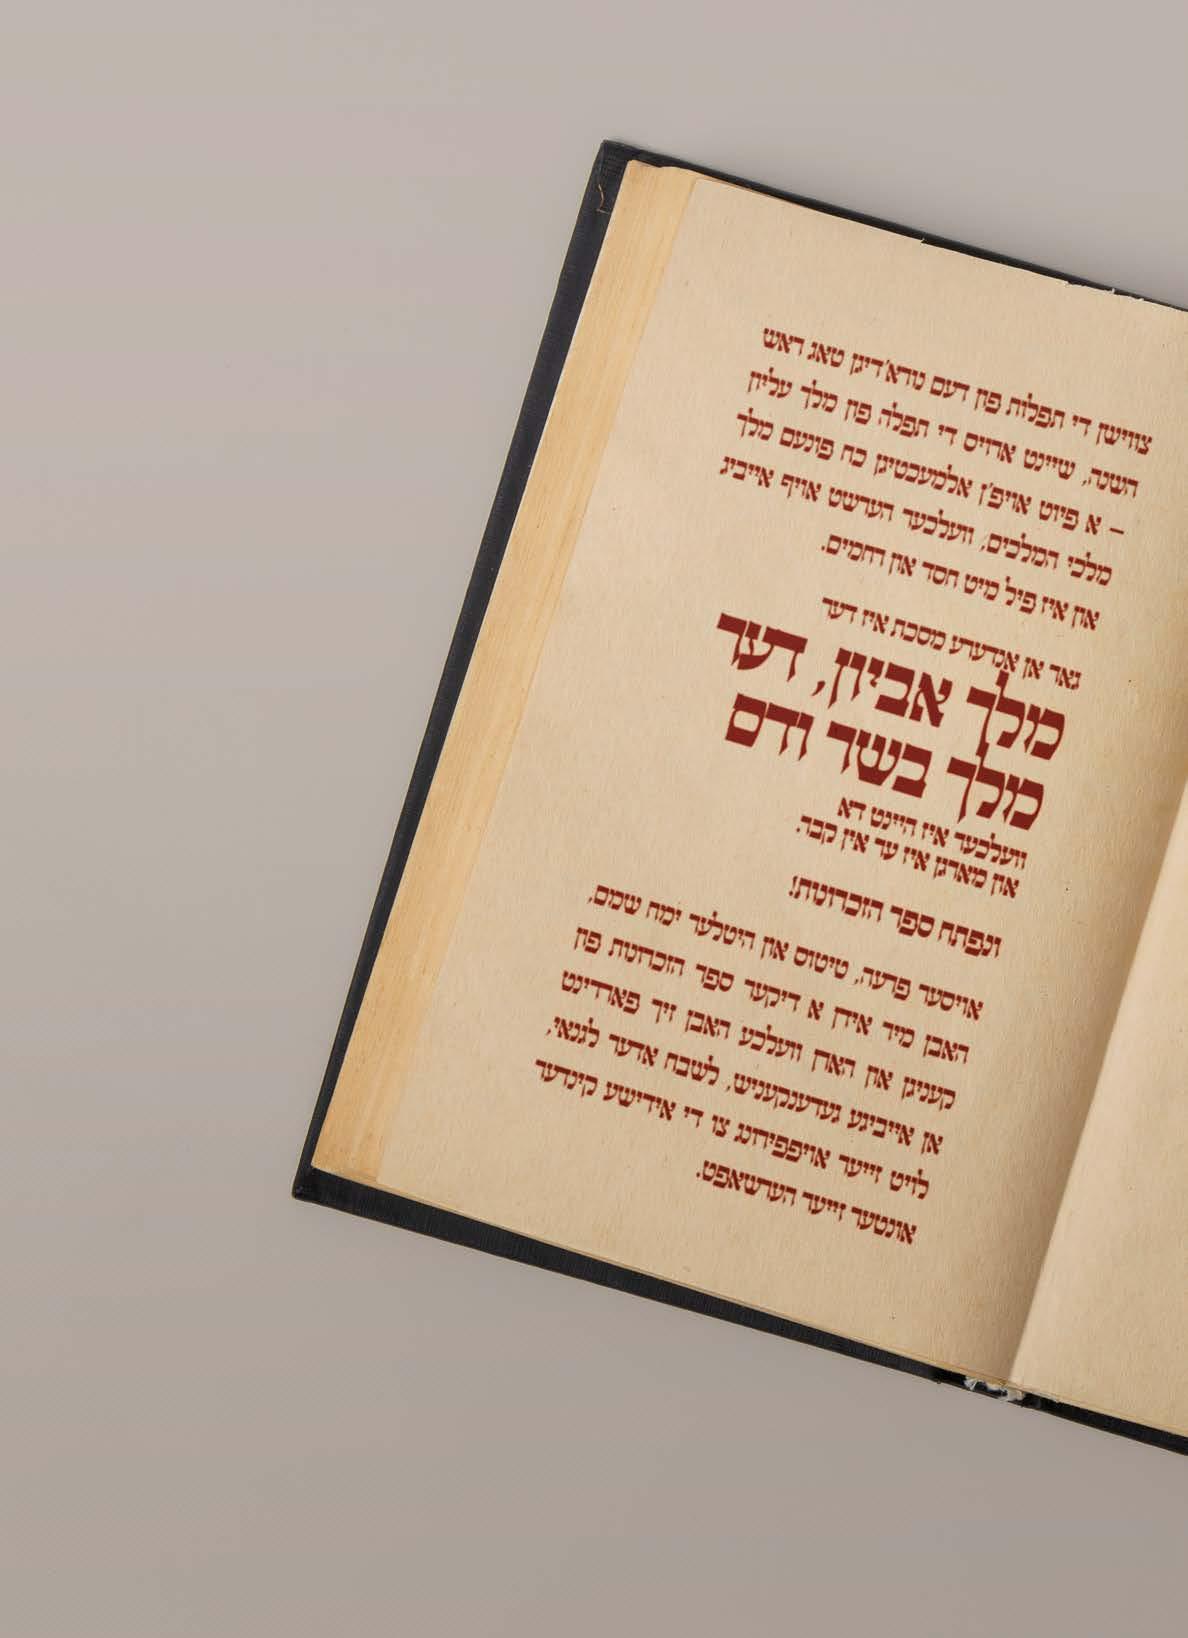 צווישן די תפלות פון דעם נורא'דיגן טאג ראש
השנה, שיינט ארויס די תפלה פון מלך עליון
– א פיוט אויפ'ן אלמעכטיגן כח פונעם מלך
מלכי המלכים, וועלכער הערשט אויף אייביג
און איז פיל מיט חסד און רחמים.
גאר אן אנדערע מסכת איז דער
מלך אביון, דער
מלך בשר ודם
וועלכער איז היינט דא
און מארגן איז ער אין קבר.
ונפתח ספר הזכרונות!
אויסער פרעה, טיטוס און היטלער ימח שמם,
האבן מיר אידן א דיקער ספר הזכרונות פון
קעניגן און הארן וועלכע האבן זיך פארדינט
אן אייביגע געדענקעניש, לשבח אדער לגנאי,
לויט זייער אויפפירונג צו די אידישע קינדער
אונטער זייער הערשאפט.